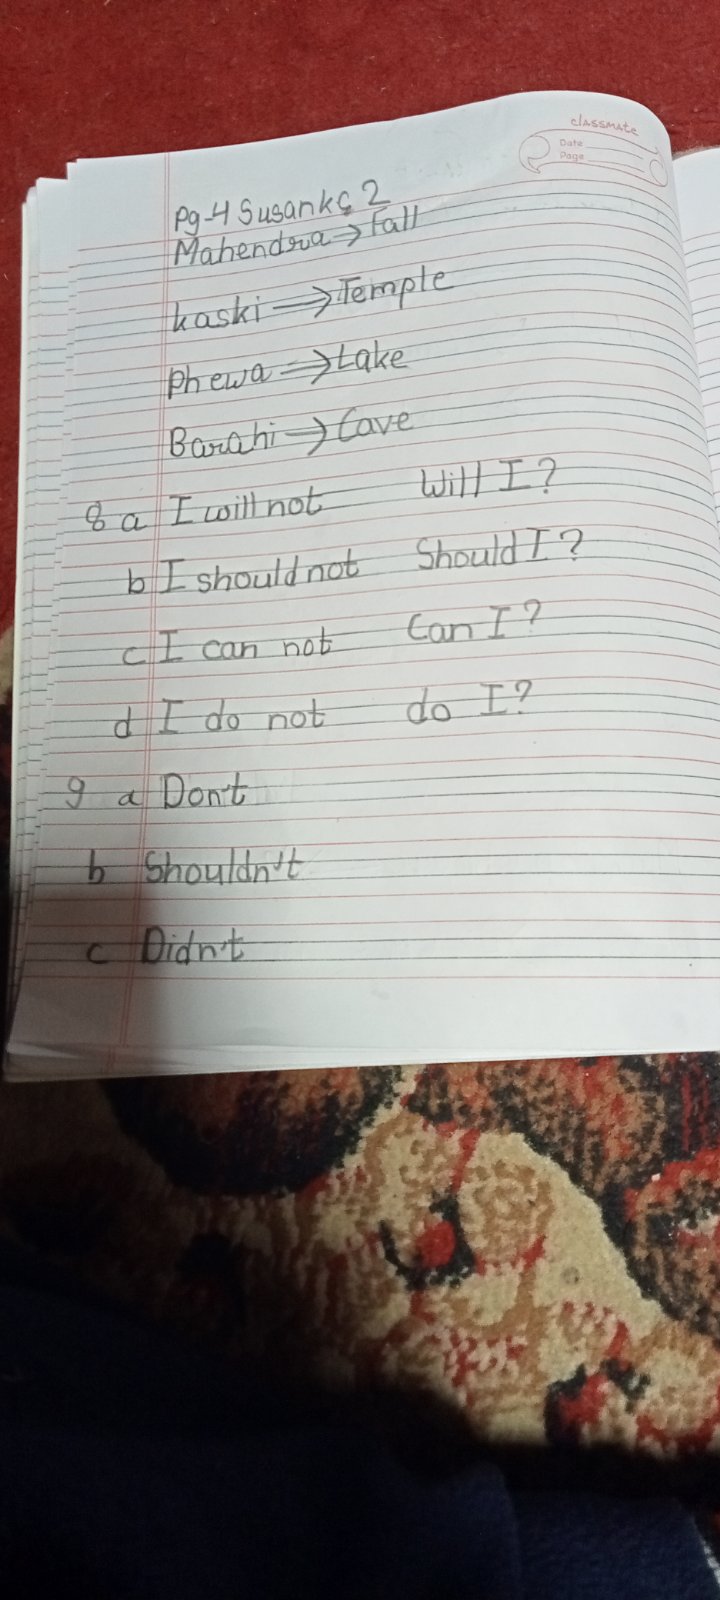 classmate
Date
Page
Pg-4 Susank G 2
Mahendra → Fall
kaski → Temple
Phewa → Lake
Barahi → Cave
8 a I will not Will I?
b I should not Should I?
c I can not Can I?
d I do not do I?
9 a Don't
b Shouldn't
c Didn't